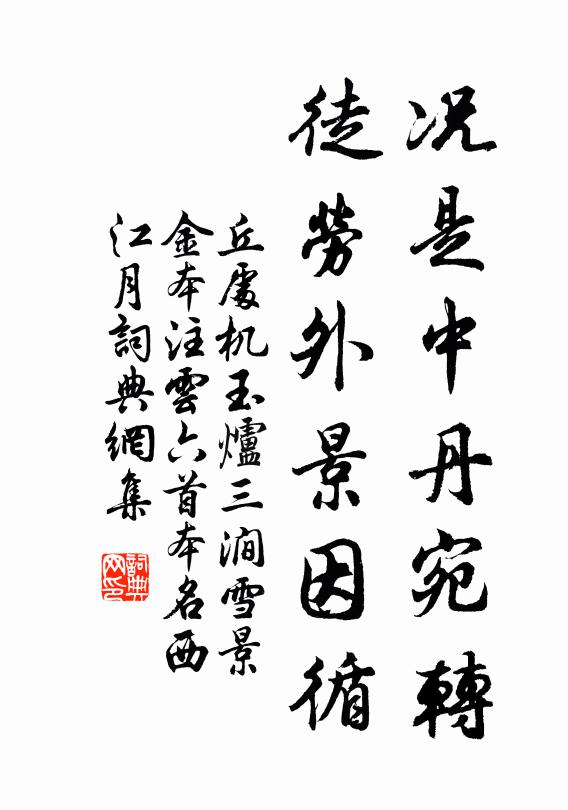 况是中丹宛轉
徒勞外景因循
丘處机玉爐三澗雪景
金本注雲六首本名西
江月詞典網集
詞典网印